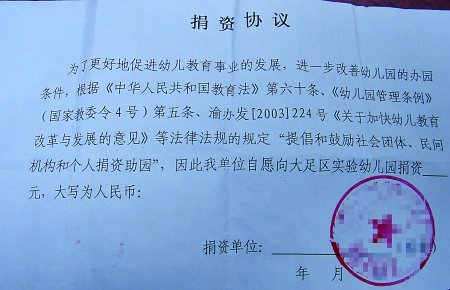 捐资协议
为了更好地促进幼儿教育事业的发展，进一步改善幼儿园的办园
条件，根据《中华人民共和国教育法》第六十条、《幼儿园管理条例》
（国家教委令4号）第五条、渝办发[2003]224号《关于加快幼儿教育
改革与发展的意见》等法律法规的规定“提倡和鼓励社会团体、民间
机构和个人捐资助园”，因此我单位自愿向大足区实验幼儿园捐资___
元，大写为人民币：
捐资单位：
年 月